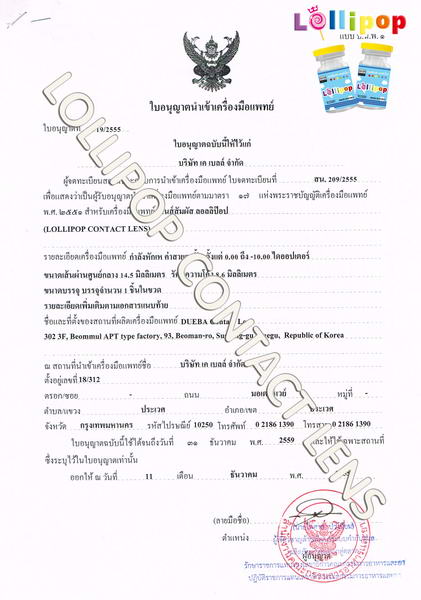 Lollipop
แบบ น.ส.พ. ๑
ใบอนุญาตนำเข้าเครื่องมือแพทย์
ใบอนุญาตที่ 19/2555
ใบอนุญาตฉบับนี้ให้ไว้แก่
บริษัท เค เบลล์ จำกัด
ผู้จดทะเบียน การนำเข้าเครื่องมือแพทย์ ใบจดทะเบียนที่ สน. 209/2555
เพื่อแสดงว่าเป็นผู้รับอนุญาต เครื่องมือแพทย์ตามมาตรา ๑๗ แห่งพระราชบัญญัติเครื่องมือแพทย์
พ.ศ. ๒๕๕๑ สำหรับเครื่องมือแพทย์ เลนส์สัมผัส ลอลลิป๊อป
(LOLLIPOP CONTACT LENS)
รายละเอียดเครื่องมือแพทย์ กำลังหักเห ค่าสายตา ตั้งแต่ 0.00 ถึง -10.00 ไดออปเตอร์
ขนาดเส้นผ่านศูนย์กลาง 14.5 มิลลิเมตร รัศมีความโค้ง 8.6 มิลลิเมตร
ขนาดบรรจุ บรรจุจำนวน 1 ชิ้นในขวด
รายละเอียดเพิ่มเติมตามเอกสารแนบท้าย
ชื่อและที่ตั้งของสถานที่ผลิตเครื่องมือแพทย์ DUEBA Contact
302 3F, Beommul APT type factory, 93, Beoman-ro, Republic of Korea
ณ สถานที่นำเข้าเครื่องมือแพทย์ชื่อ บริษัท เค เบลล์ จำกัด
ตั้งอยู่เลขที่ 18/312
ตรอก/ซอย - ถนน มอเตอร์เวย์ หมู่ที่ -
ตำบล/แขวง ประเวศ อำเภอ/เขต ประเวศ
จังหวัด กรุงเทพมหานคร รหัสไปรษณีย์ 10250 โทรศัพท์ 0 2186 1390 โทรสาร 0 2186 1390
ใบอนุญาตฉบับนี้ใช้ได้จนถึงวันที่ ๓๑ ธันวาคม พ.ศ. 2559 และให้ใช้เฉพาะสถานที่
ซึ่งระบุไว้ในใบอนุญาตเท่านั้น
ออกให้ ณ วันที่ 11 เดือน ธันวาคม พ.ศ.
(ลายมือชื่อ)
ตำแหน่ง
ผู้อนุญาต
LOLLIPOP CONTACT LENS